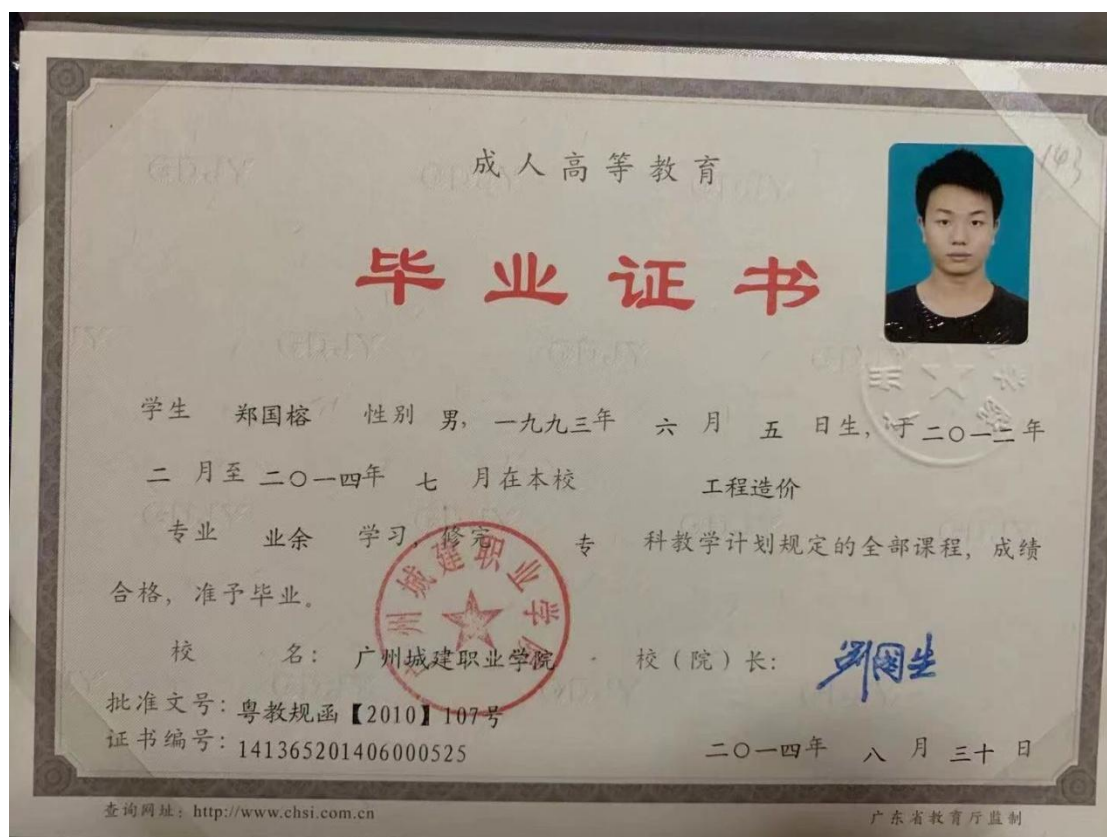 成人高等教育
143
毕业证书
学生 郑国榕 性别 男，一九九三年 六 月 五 日生，于二〇一二年
二 月至二〇一四年 七 月在本校 工程造价
专业 业余 学习，修完 专 科教学计划规定的全部课程，成绩
合格，准予毕业。
广州城建职业学院
校 名：广州城建职业学院 校（院）长：
批准文号：粤教规函【2010】107号
证书编号：141365201406000525 二〇一四年 八 月 三十 日
查询网址：http://www.chsi.com.cn 广东省教育厅监制